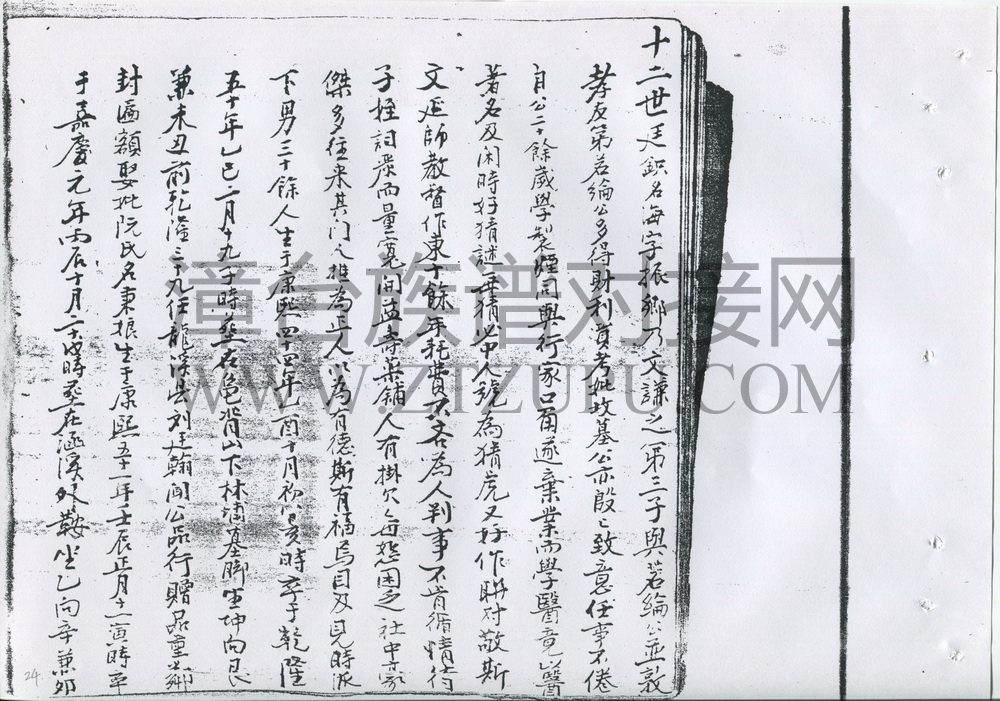 十二世廷鋭名海字振鄉乃文謙之第三子與若綸公並敦
孝友第若綸公多得財利買考妣坟墓公亦殷々致意任事不倦
自公二十餘歲學製煙同與行家口角遂棄業而學醫竟以醫
著名及闲時好猜謎每猜必中人號為猜虎又好作聯对敬斯
文延師教督作東十餘年耗費不吝為人判事不肯循情待
子姪詞嚴而量寬開益壽藥铺人有掛欠每恕困乏社中豪
傑多往来其门々推為正人以為有德斯有福焉目及見時派
下男三十餘人生于康熙四十四年乙酉十月初八亥時卒于乾隆
五十年乙巳二月十九子時葬在邑背山下林埔墓脚坐坤向艮
兼未丑前乾隆三十九任龍溪县刘廷翰闻公品行贈品重出鄉
封匾額娶妣阮氏名東娘生于康熙五十一年壬辰正月十一寅時卒
于嘉慶元年丙辰十月二十時葬在涵溪外鞍坐乙向辛兼卯
漳台族谱对接网
WWW.ZTZUPU.COM
24